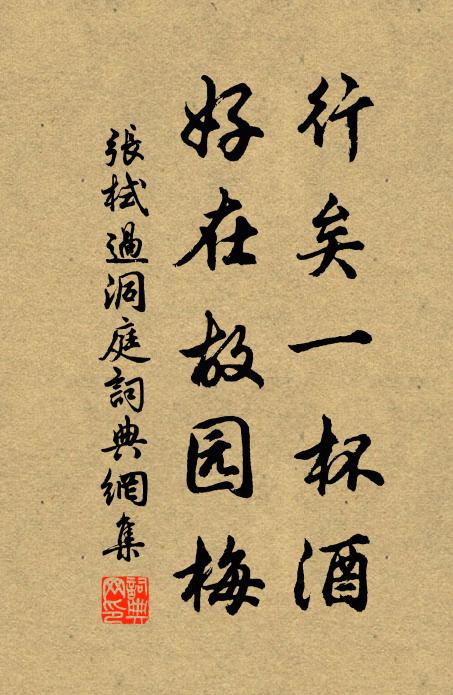 行矣一杯酒
好在故园梅
張栻過洞庭詞典網集
詞典網印